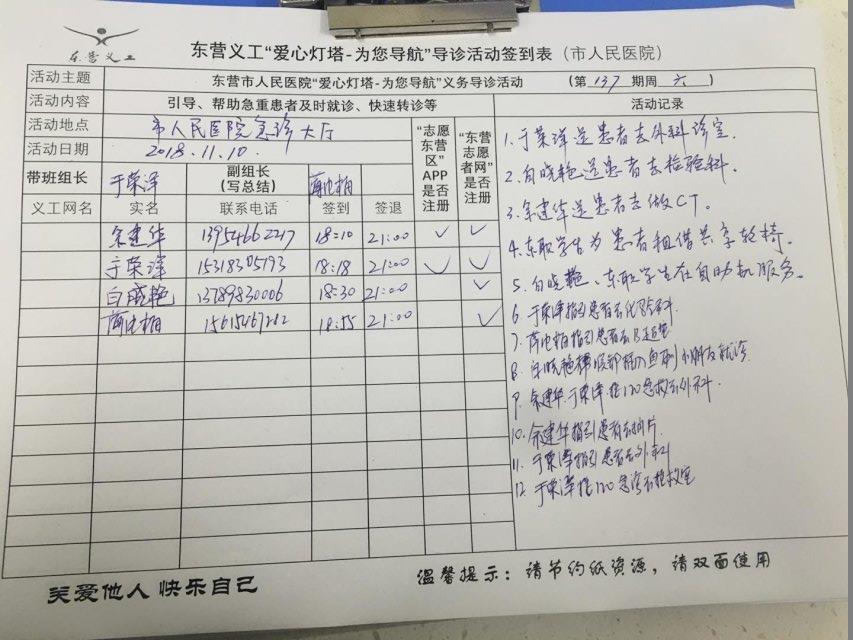 东营义工
东营义工“爱心灯塔-为您导航”导诊活动签到表（市人民医院）
活动主题 东营市人民医院“爱心灯塔-为您导航”义务导诊活动 （第137期周六）
活动内容 引导、帮助急重患者及时就诊、快速转诊等 活动记录
活动地点 市人民医院急诊大厅
活动日期 2018.11.10.
“志愿东营区”APP是否注册
“东营志愿者网”是否注册
带班组长 于荣泽 副组长（写总结）
义工网名 实名 联系电话 签到 签退
余建华 13954662217 18:10 21:00 ✓ ✓
于荣泽 15318305193 18:18 21:00 ✓ ✓
白晓艳 13789830006 18:30 21:00 ✓
18:55 21:00 ✓
1.于荣泽送患者去外科诊室.
2.白晓艳送患者去检验科.
3.余建华送患者去做CT.
4.东职学生为患者租借共享轮椅.
5.白晓艳、东职学生在自助机服务.
6.于荣泽指引患者去
7.指引患者去
8.白晓艳 小朋友就诊
9.余建华.于荣泽.推120急救去外科.
10.余建华指引患者去拍片.
11.于荣泽指引患者去外科
12.于荣泽推120急诊去抢救室
关爱他人 快乐自己
温馨提示：请节约纸资源，请双面使用